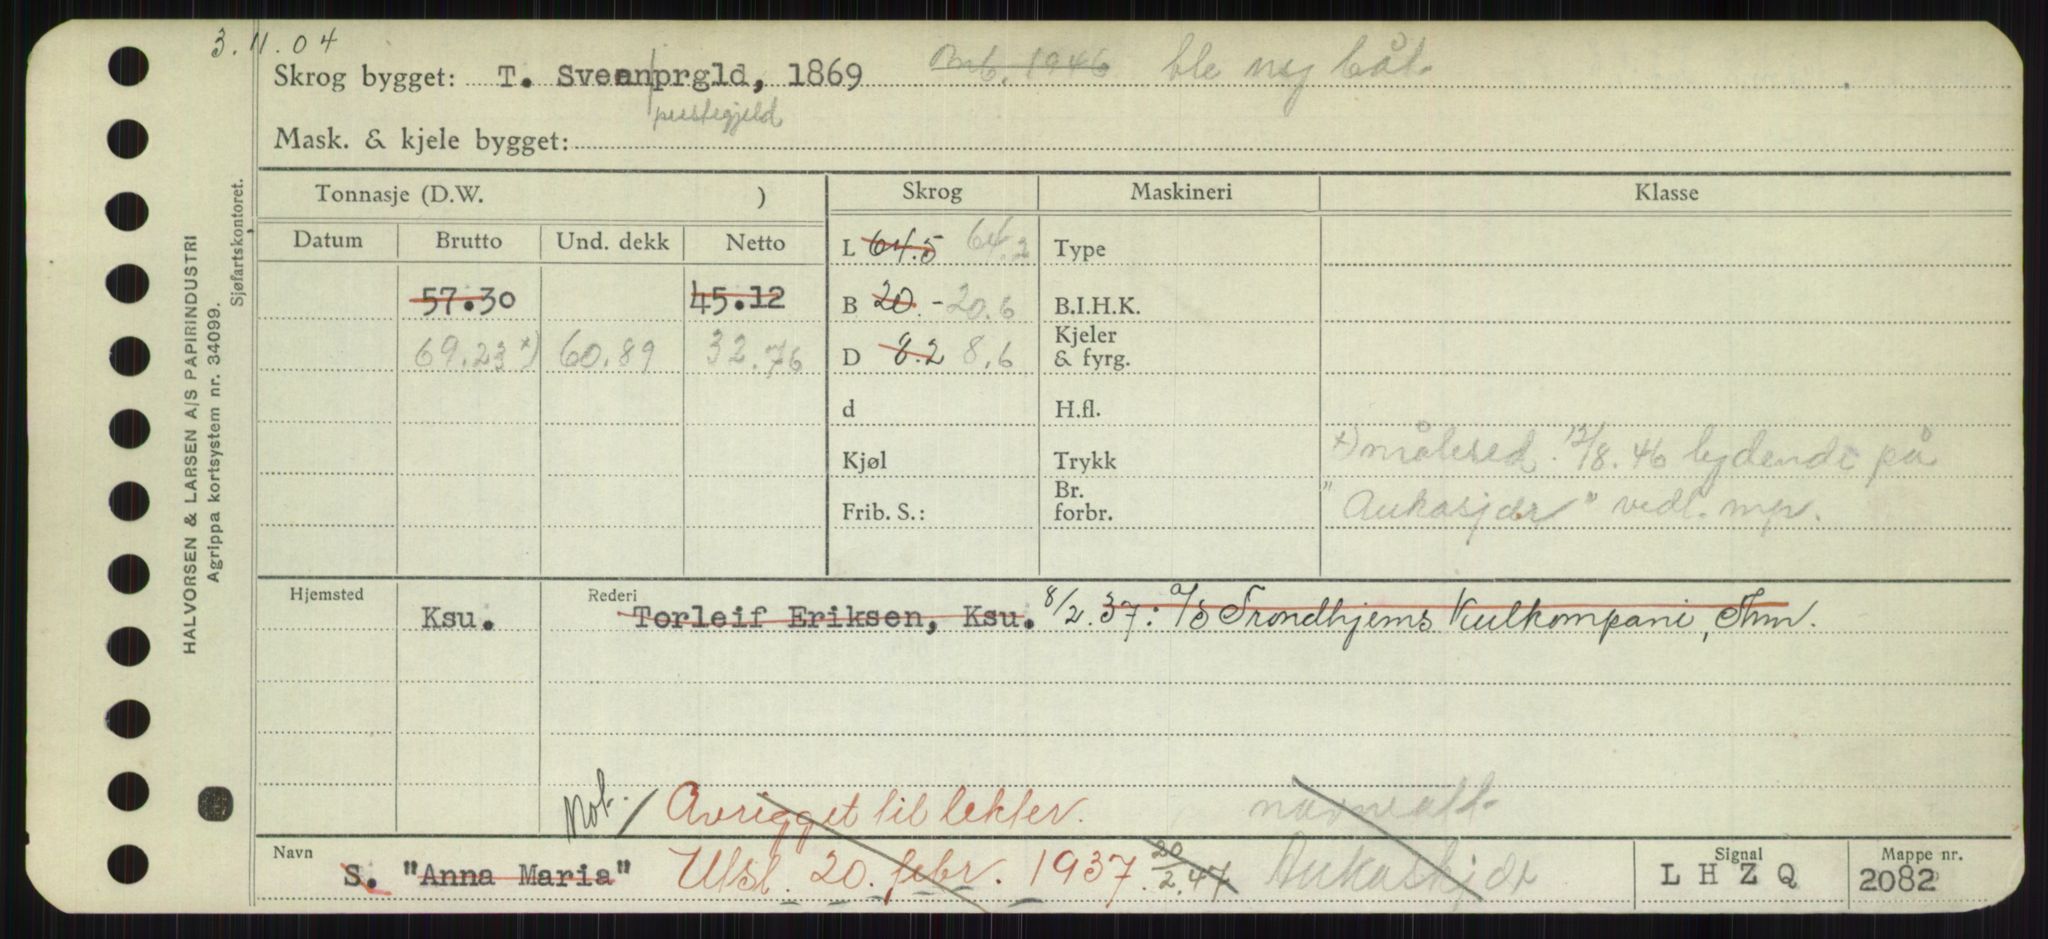 3.11.04
Skrog bygget: T. Sveenprgld, 1869 Omb. 1946 ble ny båt.
prestegjeld
Mask. & kjele bygget:
HALVORSEN & LARSEN A/S PAPIRINDUSTRI
Agrippa kortsystem nr. 34099.
Sjøfartskontoret.
Tonnasje (D.W. ) Skrog Maskineri Klasse
Datum Brutto Und. dekk Netto L 64.5 64.2 Type
57.30 45.12 B 20.- 20.6 B.I.H.K.
69.23 x) 60.89 32.76 D 8.2 8.6 Kjeler & fyrg.
d H.fl.
Kjøl Trykk x) målesed. 12/8.46 lydende på
Frib. S.: Br. forbr. "Aukaskjær" vedl. mp.
Hjemsted Rederi
Ksu. Torleif Eriksen, Ksu. 8/2.37: A/S Trondhjems Kulkompani, Thm.
Not. / Avrigget til lekter. navneatt.
Navn Signal Mappe nr.
S. "Anna Maria" Utsl. 20. febr. 1937. 20/2.47 Aukaskjær L H Z Q 2082